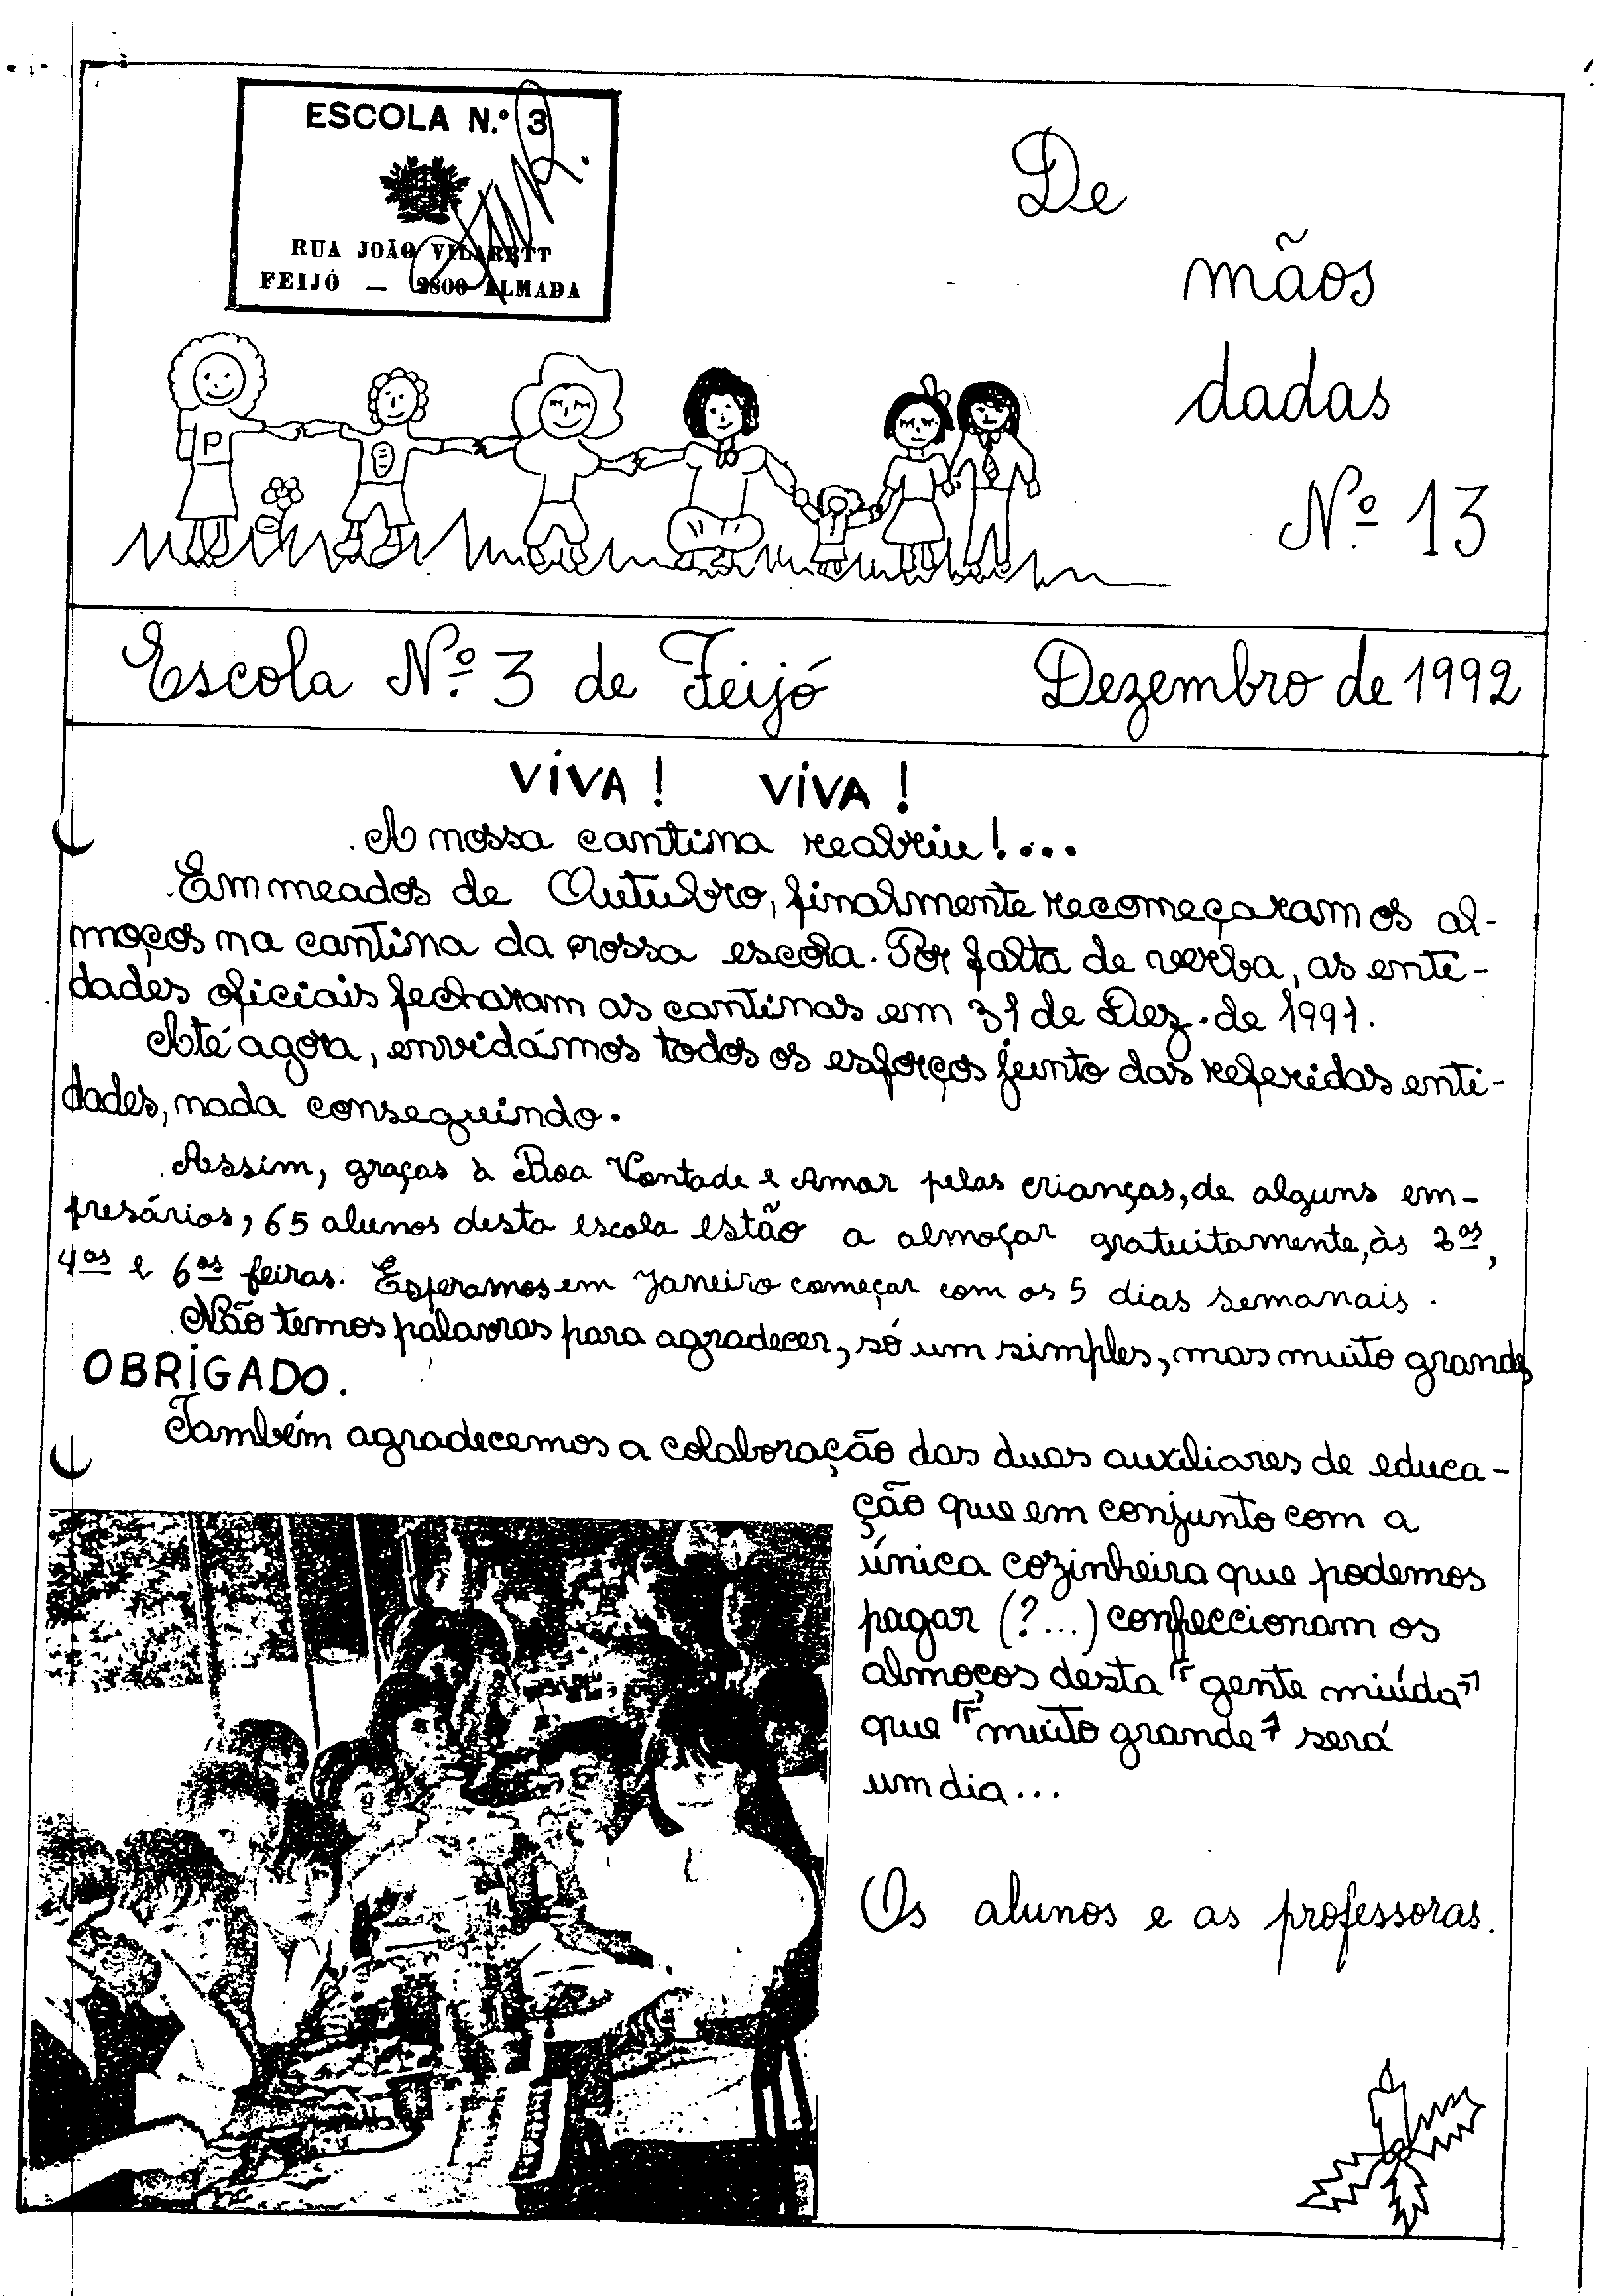 ESCOLA N.º 3
RUA JOÃO VILARETT
FEIJÓ — 2800 ALMADA
De
mãos
dadas
Nº 13
P
Escola Nº 3 de Feijó
Dezembro de 1992
VIVA! VIVA!
A nossa cantina reabriu!...
Em meados de Outubro, finalmente recomeçaram os al-
moços na cantina da nossa escola. Por falta de verba, as enti-
dades oficiais fecharam as cantinas em 31 de Dez. de 1991.
Até agora, envidámos todos os esforços junto das referidas enti-
dades, nada conseguindo.
Assim, graças à Boa Vontade e Amor pelas crianças, de alguns em-
presários, 65 alunos desta escola estão a almoçar gratuitamente, às 2as,
4as e 6as feiras. Esperamos em Janeiro começar com os 5 dias semanais.
Não temos palavras para agradecer, só um simples, mas muito grande,
OBRIGADO.
Também agradecemos a colaboração das duas auxiliares de educa-
ção que em conjunto com a
única cozinheira que podemos
pagar (?...) confeccionam os
almoços desta "gente miúda"
que "muito grande" será
um dia...
Os alunos e as professoras.